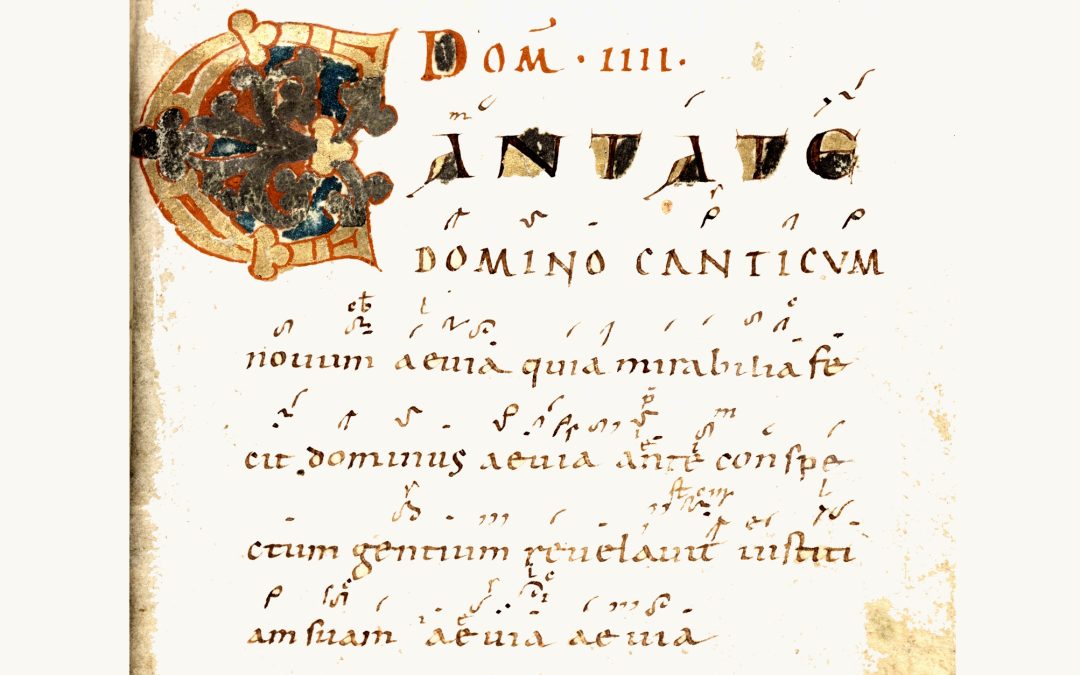 DOM̄ · IIII ·
CANTATE
DOMINO CANTICVM
nouum aeuia quia mirabilia fe
cit dominus aeuia ante conspe
ctum gentium reuelauit iustiti
am suam aeuia aeuia